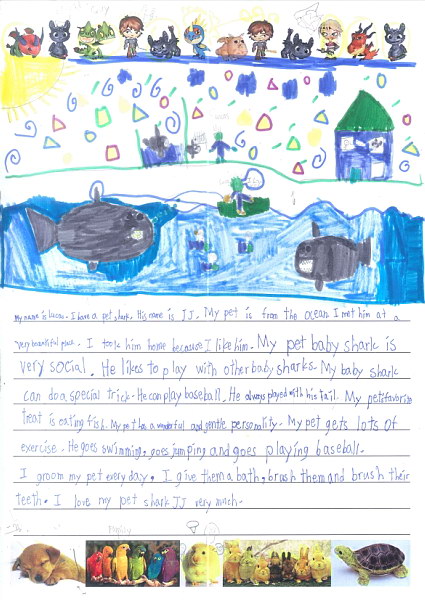 My name is lucas. I have a pet shark. His name is JJ. My pet is from the ocean I met him at a
very beautiful place. I took him home because I like him. My pet baby shark is
very social. He likes to play with other baby sharks. My baby shark
can do a special trick. He can play baseball. He always played with his tail. My pet favorite
treat is eating fish. My pet has a wonderful and gentle personality. My pet gets lots of
exercise. He goes swimming, goes jumping and goes playing baseball.
I groom my pet every day. I give them a bath, brush them and brush their
teeth. I love my pet shark JJ very much.